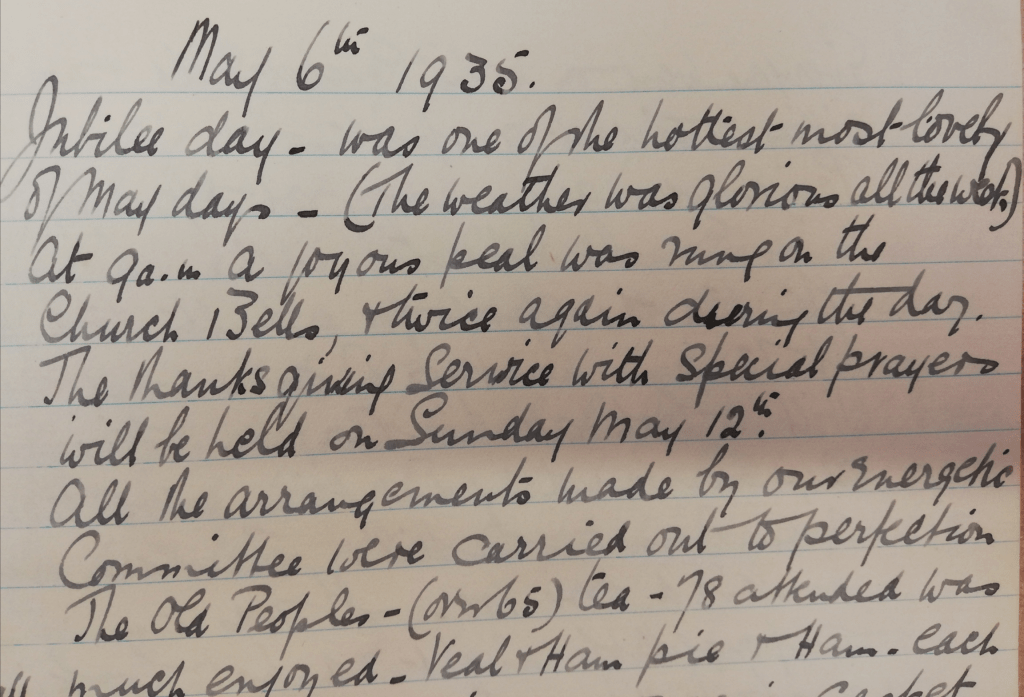 May 6th 1935.
Jubilee day - was one of the hottest most lovely
of May days - (The weather was glorious all the week)
At 9a.m a joyous peal was rung on the
Church Bells, & twice again during the day.
The thanksgiving Service with Special prayers
will be held on Sunday May 12th.
All the arrangements made by our energetic
Committee were carried out to perfection
The Old Peoples - (over 65) tea - 78 attended was
much enjoyed - Veal & Ham pie & Ham. each